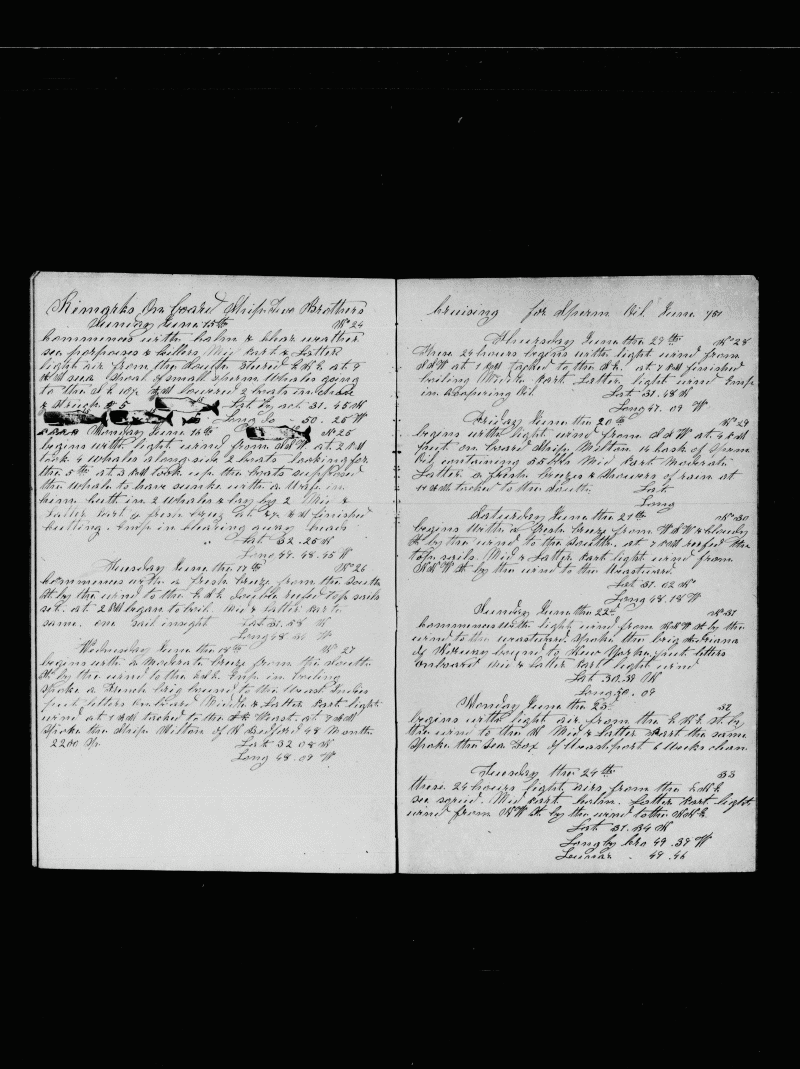 Remarks On board Ship Two Brothers
Sunday June 15th No 24
commences with calm & clear weather
saw porpoises & killers Mid Part & Latter
light air from the South Steered E.N.E. at 9
A.M saw Shoal of small sperm Whales going
to the lowered 2 boats in chase
& Struck # 5 Lat by act 31.45 N
Long Do 50.25 W
Monday June 16th No 25
begins with light wind from at 2 P.M
took 4 whales along side 2 boats looking for
the 5th at 3 P.M took up the boats supposed
the whale to have sunk with a Waif in
him cut in 2 whales & lay by 2 Mid &
Latter Part a fresh breeze at A.M finished
cutting. Emp in clearing away heads
Lat 32.25 N
Long 49.48.45 W
Tuesday June the 17th No 26
commences with a fresh breeze from the South
St by the wind to the double reefed top sails
set. at 2 P.M began to boil. Mid & Latter Parts
same. one sail insight Lat 31.58 N
Long 48 W
Wednesday June the 18th No 27
begins with a moderate breeze from the South
St by the wind to the Emp. in boiling
Spoke a French brig bound to the West Indies
put letters on board Middle & Latter Part light
wind at 1 A.M tacked to the West. at 9 A.M
Spoke the Ship Milton of N Bedford 48 Months
2200 Sp Lat 32 08 N
Long 48.09 W
cruising for Sperm Oil June 1851
Thursday June the No 28
These 24 hours begins with light wind from
S.S.W at 1 P.M tacked to the at 7 P.M finished
boiling Middle Part. Latter light wind Emp
in Coopering Oil Lat 31.48 N
Long 47.09 W
Friday June the 20th No 29
begins with light wind from S.S.W at 4 P.M
put on board Ship Milton 12 cask of Sperm
Oil containing 55 bbls Mid Part Moderate
Latter a fresh breeze & showers of rain at
A.M tacked to the South Lat
Long
Saturday June the 21th No 30
begins with a fresh breeze from W.S.W & cloudy
St by the wind to the South. at 7 P.M reefed the
top sails. Mid & Latter Part light wind from
St by the wind to the Westward
Lat 31.02 N
Long 48.18 W
Sunday June the 22d No 31
commences with light wind from St by the
wind to the westward. Spoke the brig Adriana
of Norway bound to New York, put letters
onboard Mid & Latter Part light wind
Lat 30.38 N
Long 50.09
Monday June the 23d 32
begins with light air from the St by
the wind to the N Mid & Latter Part the same
Spoke the Sea Fox of Westport 6 Weeks clean
Tuesday the 24th 33
these 24 hours light airs from the
saw squid. Mid Part calm. Latter Part light
wind from St by the wind to the
Lat 31.34 N
Long by Chro 49.39 W
Lunar . 49.46